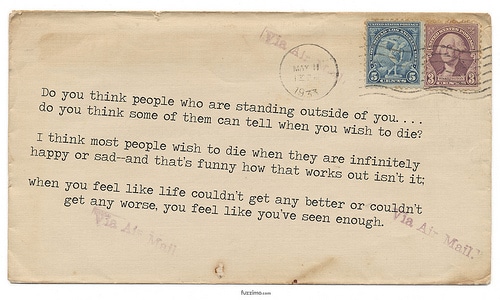 Via Air Mail
MAY 11
1933
5 5
3 3
Do you think people who are standing outside of you....
do you think some of them can tell when you wish to die?
I think most people wish to die when they are infinitely
happy or sad--and that's funny how that works out isn't it;
when you feel like life couldn't get any better or couldn't
get any worse, you feel like you've seen enough.
Via Air Mail
Via Air Mail.
fuzzimo.com